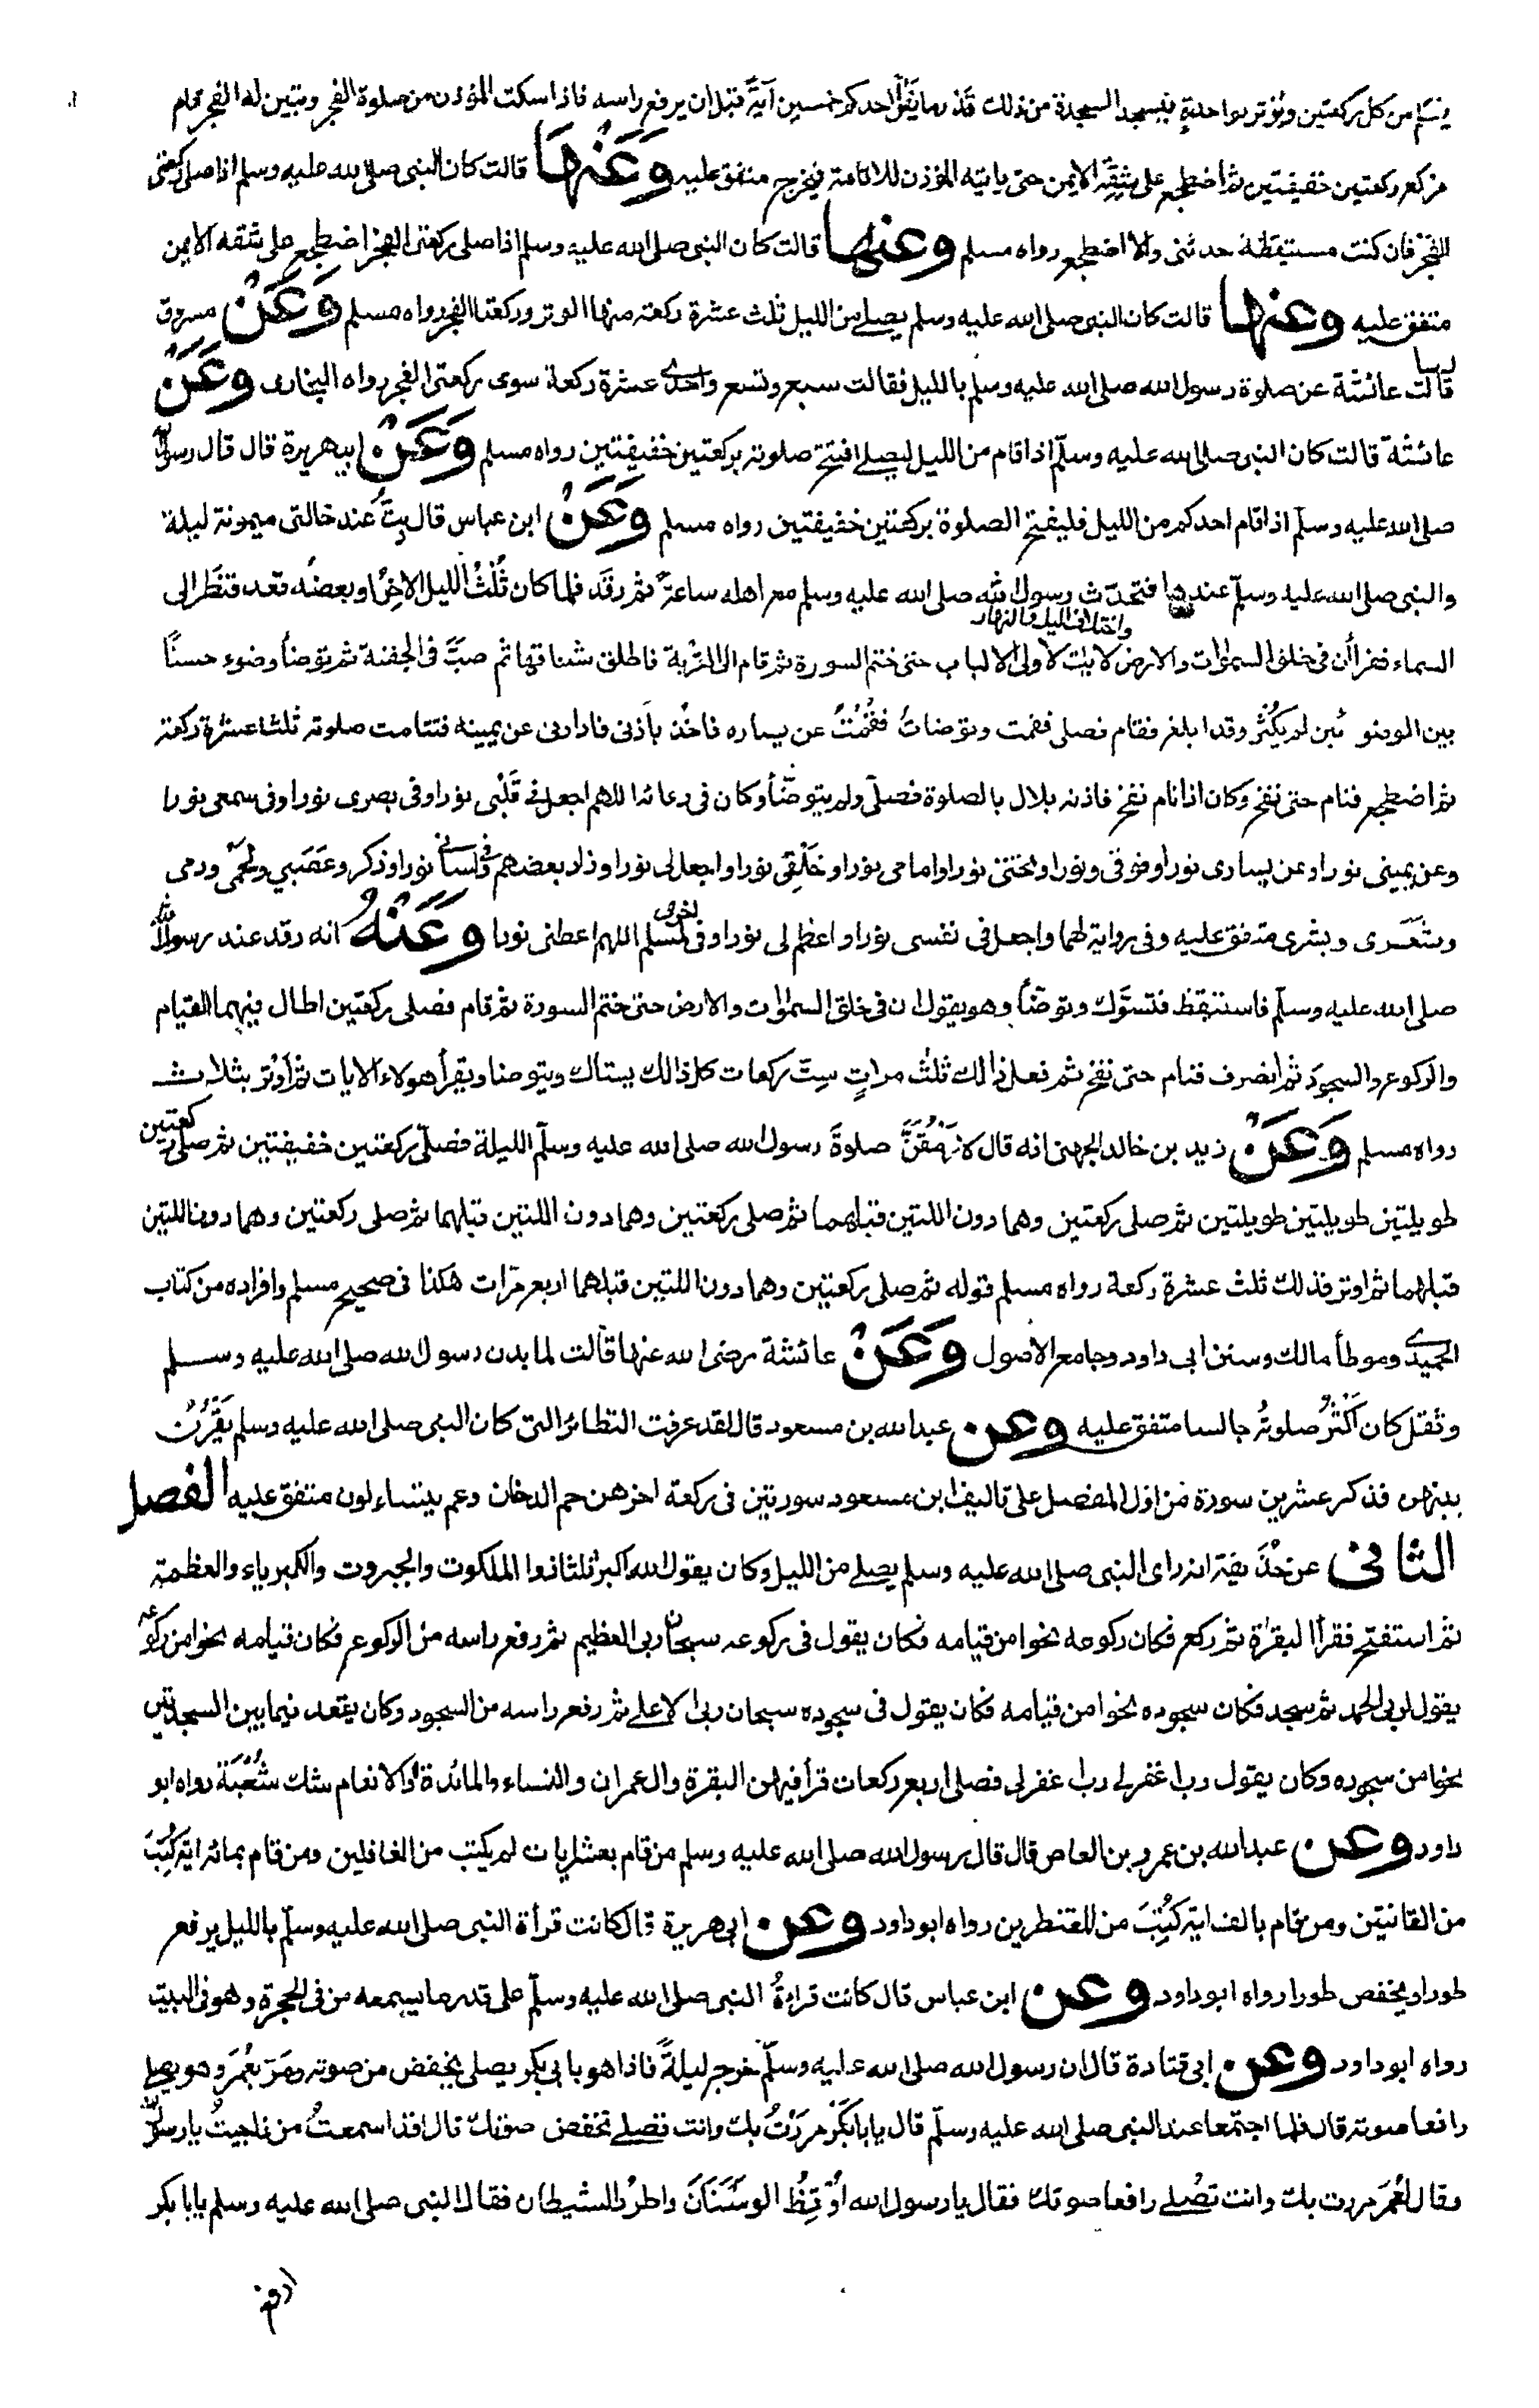 يسلم من كل ركعتين ويوتر بواحدة فيسجد السجدة من ذلك قدر ما يقرأ احدكم خمسين آية قبل ان يرفع راسه فاذا سكت المؤذن من صلوة الفجر وتبين له الفجر قام
فركع ركعتين خفيفتين ثم اضطجع على شقه الايمن حتى ياتيه المؤذن للاقامة فيخرج متفق عليه وَعَنْهَا قالت كان النبي صلى الله عليه وسلم اذا صلى ركعتي
الفجر فان كنت مستيقظة حدثنى والا اضطجع رواه مسلم وعنها قالت كان النبي صلى الله عليه وسلم اذا صلى ركعتي الفجر اضطجع على شقه الايمن
متفق عليه وعنها قالت كان النبي صلى الله عليه وسلم يصلے من الليل ثلث عشرة ركعة منها الوتر وركعتا الفجر رواه مسلم وَعَنْ مسروق
قالت عائشة عن صلوة رسول الله صلى الله عليه وسلم بالليل فقالت سبع وتسع واحدے عشرة ركعة سوى ركعتي الفجر رواه البخارى وَعَنْ
عائشة قالت كان النبي صلى الله عليه وسلم اذا قام من الليل ليصلے افتتح صلوته بركعتين خفيفتين رواه مسلم وَعَنْ ابيهريرة قال قال رسول الله
صلى الله عليه وسلم اذا قام احدكم من الليل فليفتح الصلوة بركعتين خفيفتين رواه مسلم وَعَنْ ابن عباس قال بِتُّ عند خالتى ميمونة ليلة
والنبي صلى الله عليه وسلم عندها فتحدث رسول الله صلى الله عليه وسلم مع اهله ساعة ثم رقد فلما كان ثُلُثُ الليل الاخر او بعضه قعد فنظر الى
واختلاف الليل والنهار
السماء فقرأ ان فى خلق السموات والارض لايات لاولى الالباب حتى ختم السورة ثم قام الى القربة فاطلق شناقها ثم صبَّ فى الجفنة ثم توضأ وضوء حسنًا
بين الوضوئين لم يكثر وقد ابلغ فقام فصلى فقمت وتوضأت فقمتُ عن يساره فاخذ باذنى فادارنى عن يمينه فتتامت صلوته ثلث عشرة ركعة
ثم اضطجع فنام حتى نفخ وكان اذا نام نفخ فاذنه بلال بالصلوة فصلّى ولم يتوضأ وكان فى دعائه اللهم اجعل فى قَلْبى نورا وفى بصرى نورا وفى سمعى نورا
وعن يمينى نورا وعن يسارى نورا وفوقى نورا وتحتى نورا وامامى نورا وخَلْفِى نورا واجعل لى نورا وزاد بعضهم وفى لسانى نورا وذكر وعَصَبي ولحمى ودمى
وشَعَرى وبشرى متفق عليه وفى رواية لهما واجعل فى نفسى نورا واعظم لى نورا وفى اخرى لمسلم اللهم اعطنى نورا وَعَنْهُ انه رقد عند رسول الله
صلى الله عليه وسلم فاستيقظ فتسوّك وتوضأ وهو يقول ان فى خلق السموات والارض حتى ختم السورة ثم قام فصلى ركعتين اطال فيهما القيام
والركوع والسجود ثم انصرف فنام حتى نفخ ثم فعل ذالك ثلث مراتٍ سِتّ ركعات كل ذالك يستاك ويتوضأ ويقرأ هولاء الايات ثم أَوْتَرَ بثلاث
رواه مسلم وَعَنْ زيد بن خالد الجهنى انه قال لَاَرْمُقَنَّ صلوةَ رسول الله صلى الله عليه وسلم الليلة فصلّى ركعتين خفيفتين ثم صلى ركعتين
طويلتين طويلتين طويلتين ثم صلى ركعتين وهما دون اللتين قبلهما ثم صلى ركعتين وهما دون اللتين قبلهما ثم صلى ركعتين وهما دون اللتين
قبلهما ثم اوتر فذلك ثلث عشرة ركعة رواه مسلم قوله ثم صلى ركعتين وهما دون اللتين قبلهما اربع مرّات هكذا فى صحيح مسلم وافراده من كتاب
الحميدے وموطأ مالك وسنن ابى داود وجامع الاصول وَعَنْ عائشة رضى الله عنها قالت لما بدن رسول الله صلى الله عليه وسلم
وثقل كان اَكْثَرُ صلوتِهُ جالسا متفق عليه وعن عبد الله بن مسعود قال لقد عرفت النظائر التى كان النبى صلى الله عليه وسلم يَقْرُنُ
بينهن فذكر عشرين سورة من اول المفصل على تاليف ابن مسعود سورتين فى ركعة اخرهن حم الدخان وعم يتساءلون متفق عليه الفصل
الثانى عن حُذَيفة انه راى النبى صلى الله عليه وسلم يصلے من الليل وكان يقول الله اكبر ثلثا ذوا الملكوت والجبروت والكبرياء والعظمة
ثم استفتح فقرأ البقرة ثم ركع فكان ركوعه نحوا من قيامه فكان يقول فى ركوعه سبحان ربى العظيم ثم رفع راسه من الركوع فكان قيامه نحوا من ركوعه
يقول لربى الحمد ثم سجد فكان سجوده نحوا من قيامه فكان يقول فى سجوده سبحان ربى الاعلے ثم رفع راسه من السجود وكان يقعد فيما بين السجدتين
نحوا من سجوده وكان يقول رب اغفر لى رب اغفر لى فصلى اربع ركعات قرأ فيهن البقرة وال عمران والنساء والمائدة أو الانعام شك شُعْبَة رواه ابو
داود وعن عبد الله بن عمرو بن العاص قال قال رسول الله صلى الله عليه وسلم من قام بعشر ايات لم يكتب من الغافلين ومن قام بمائة اية كُتِبَ
من القانتين ومن قام بالف اية كُتِبَ من المقنطرين رواه ابوداود وعن ابى هريرة قال كانت قرأة النبى صلى الله عليه وسلم بالليل يرفع
طورا ويخفض طورا رواه ابوداود وعن ابن عباس قال كانت قراءةُ النبى صلى الله عليه وسلم على قدر ما يسمعه من فى الحجرة وهو فى البيت
رواه ابوداود وعن ابى قتادة قال ان رسول الله صلى الله عليه وسلم خرج ليلةً فاذا هو بابى بكر يصلى يخفض من صوته ومَرّ بعُمَرَ وهو يصلے
رافعا صوته قال فلما اجتمعا عند النبى صلى الله عليه وسلم قال يابابكر مررتُ بك وانت تصلے تخفض صوتك قال قد اسمعتُ من ناجيتُ يا رسول الله
وقال لعُمَرَ مررت بك وانت تُصلے رافعا صوتك فقال يا رسول الله اُوْقِظُ الوَسْنَانَ واطردُ الشيطان فقال النبى صلى الله عليه وسلم يابا بكر
ارفع